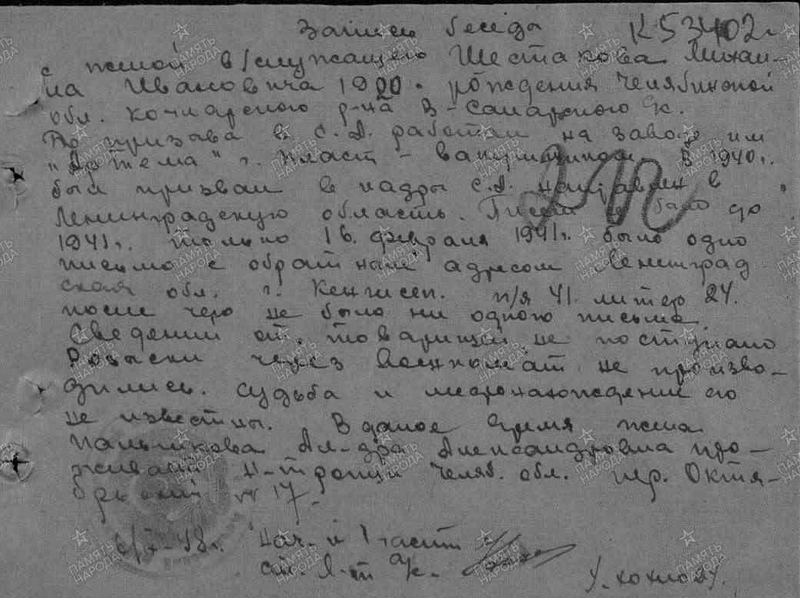 Запись беседы К 53402 г
с женой в/служащего Шестакова Михаи-
ла Ивановича 1920 рождения Челябинской
обл. Кочкарского р-на В-Санарского с/с.
До призыва в С.А. работал на заводе им
"Артема" г. Пласт - В 1940 г.
был призван в кады С.А. направлен в
Ленинградскую область. было до
1941 г. только 16 февраля 1941 г. было одно
письмо с обратным адресом Ленинград
ская обл. г. Кенгисеп. п/я 41 литер 24.
после чего не было ни одного письма.
Сведений от товарищей не поступало
Розыски через Военкомат не произво-
дились. Судьба и местонахождение его
не известны. В даное время жена
Ал-дра Александровна про-
живает Н-Троицк Челяб. обл. пер. Октя-
брьский № 17.
48 г. Нач-к 1 части